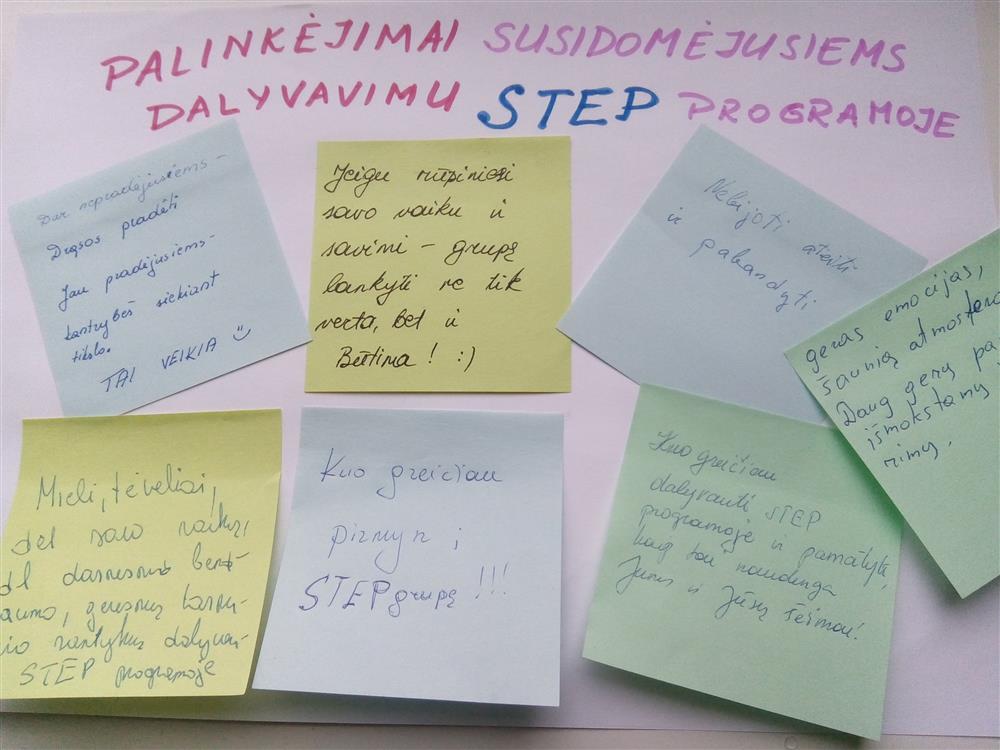 PALINKĖJIMAI SUSIDOMĖJUSIEMS
DALYVAVIMU STEP PROGRAMOJE
Dar nepradėjusiems -
Drąsos pradėti
Jau pradėjusiems -
kantrybės siekiant
tikslo.
TAI VEIKIA
Jeigu rūpiniesi
savo vaiku ir
savimi - grupę
lankyti ne tik
verta, bet ir
Būtina! :)
Nebijoti ateiti
ir pabandyti
geras emocijas,
šaunią atmosferą
Daug gerų pa
išmokstamų
rimų.
Mieli, tėveliai,
dėl savo vaikų,
dėl darnesnio bend
aumo, geresnių tarpu-
io santykių dalyvau
STEP programoje
Kuo greičiau
pirmyn į
STEP grupę !!!
Kuo greičiau
dalyvauti STEP
programoje ir pamatyti,
kaip tai naudinga
Jums ir Jūsų šeimai!